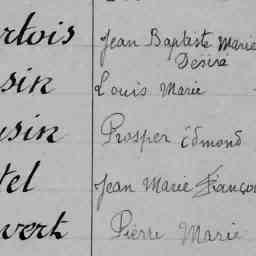 rtois Jean Baptiste Marie
Désiré
sin Louis Marie
usin Prosper Edmond
tel Jean Marie Françoi
vert Pierre Marie